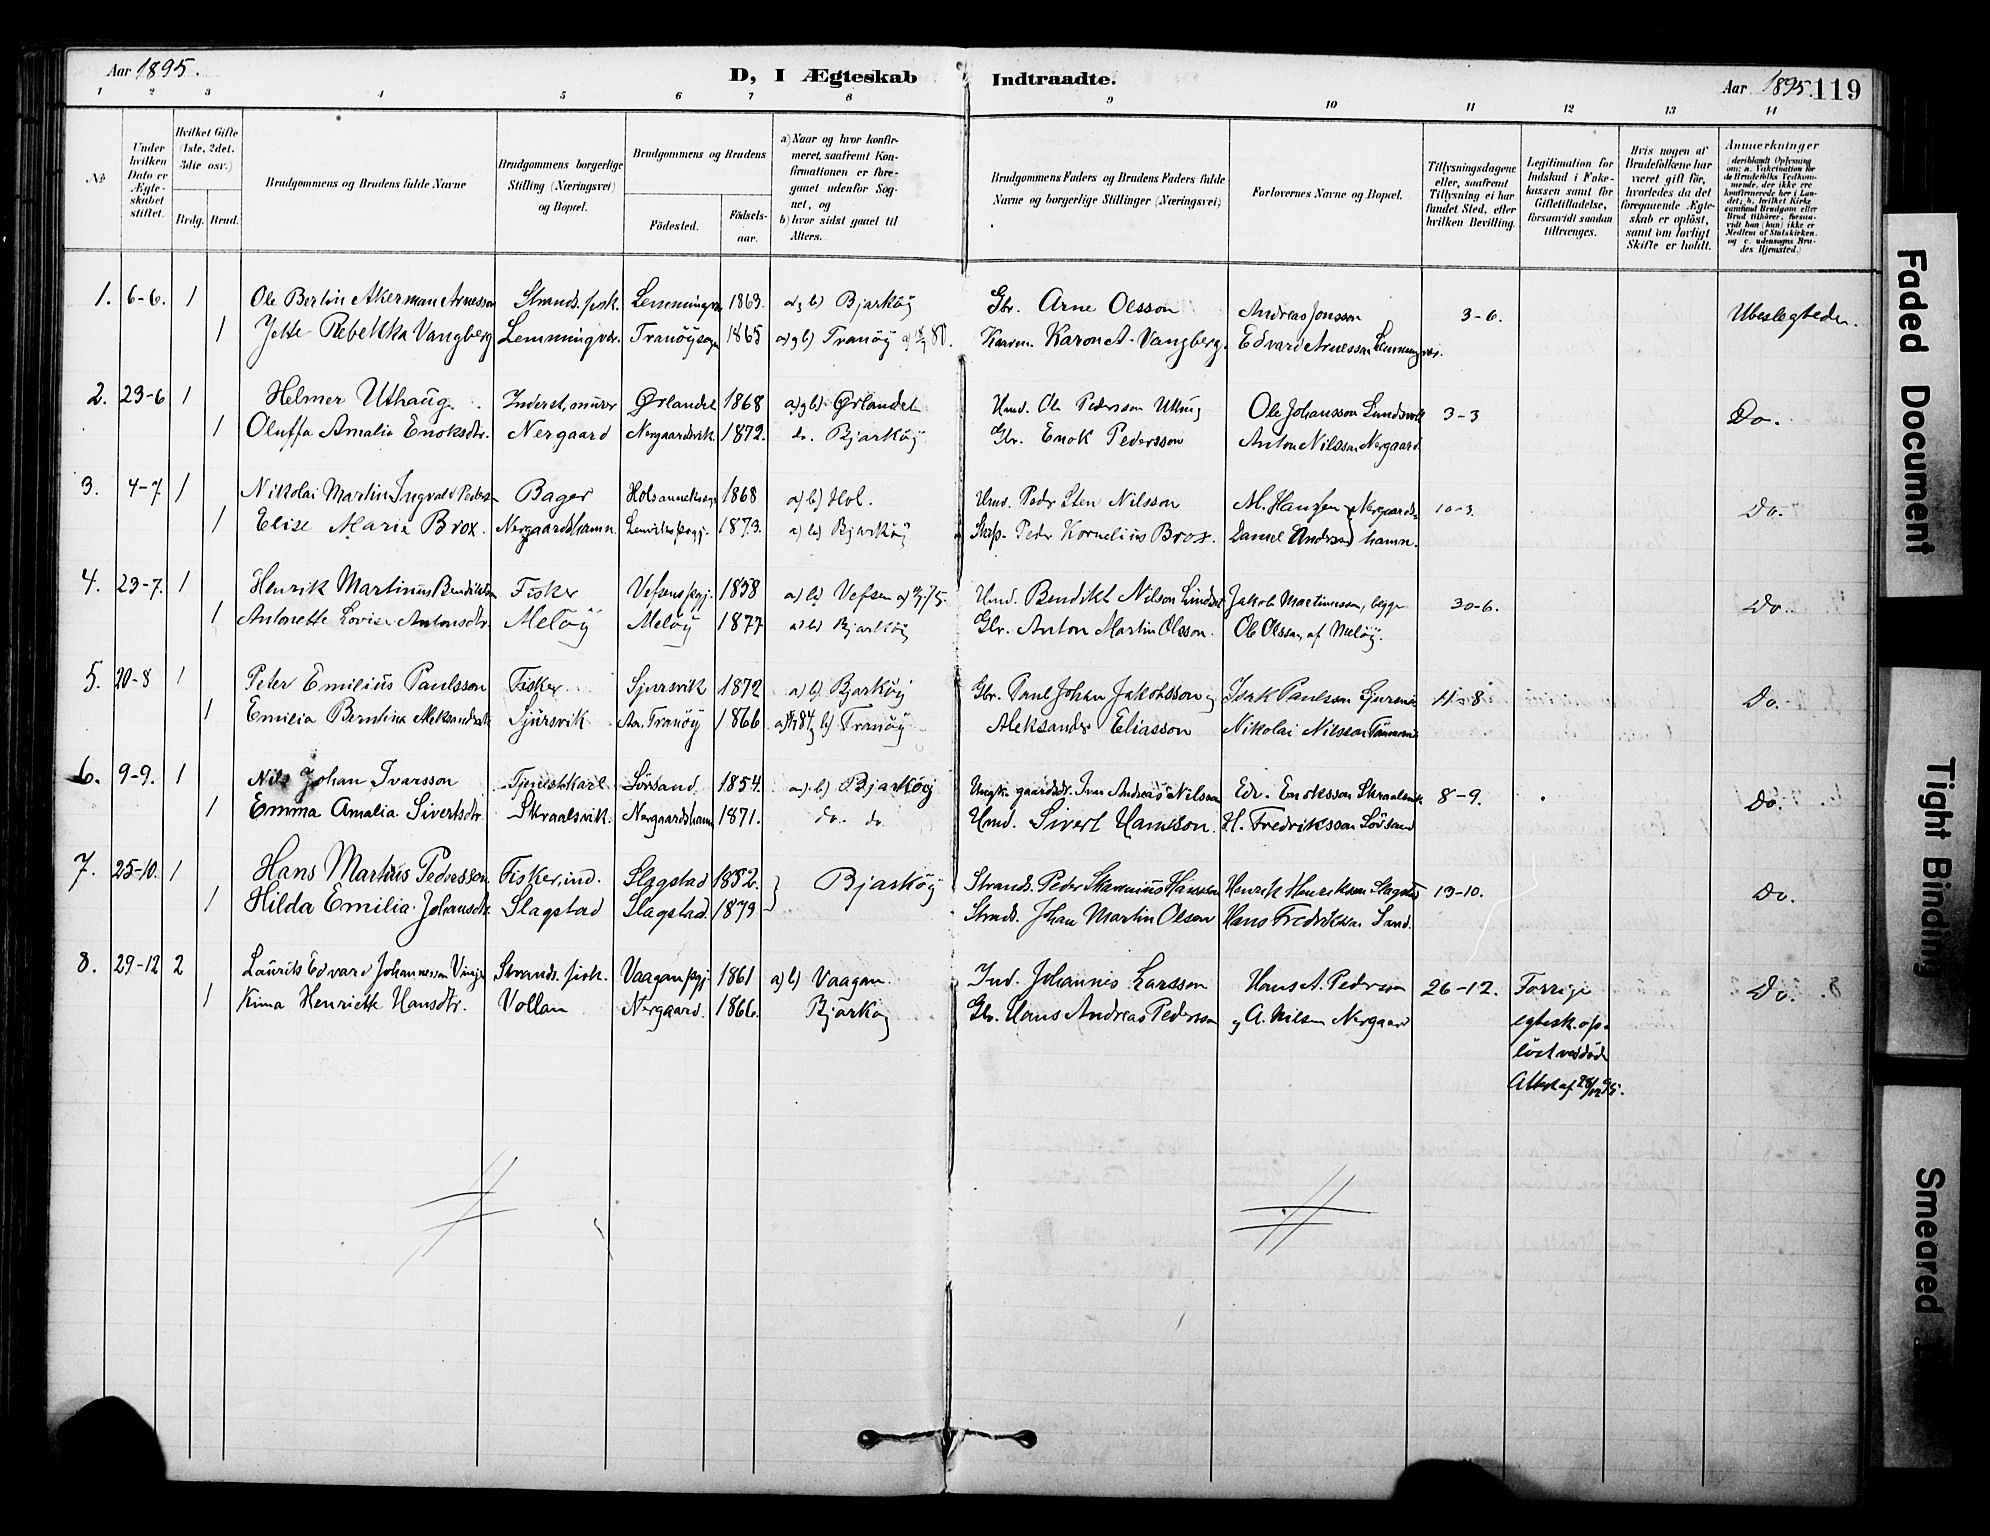 Aar 1895. D, I Ægteskab Indtraadte. Aar 1895. 119
1 2 3 4 5 6 7 8 9 10 11 12 13 14
№
Under hvilken Dato er Ægteskabet stiftet.
Hvilket Gifte (1ste, 2det, 3die osv.)
Brdg. Brud.
Brudgommens og Brudens fulde Navne
Brudgommens borgerlige Stilling (Næringsvei) og Bopæl.
Brudgommens og Brudens
Födested. Födsels-aar.
a) Naar og hvor konfir-meret, saafremt Kon-firmationen er fore-gaaet udenfor Sog-net, og
b) hvor sidst gaaet til Alters.
Brudgommens Faders og Brudens Faders fulde Navne og borgerlige Stillinger (Næringsvei)
Forlovernes Navne og Bopæl.
Tillysningsdagene eller, saafremt Tillysning ei har fundet Sted, efter hvilken Bevilling.
Legitimation for Indskud i Enke-kassen samt for Giftetilladelse, forsaavidt saadan tiltrænges.
Hvis nogen af Brudefolkene har været gift för, hvorledes da det foregaaende Ægte-skab er oplöst, samt om lovligt Skifte er holdt.
Anmærkninger (deriblandt Oplysning om: a. Vakcination for de Brudefolks Vedkom-mende, der ikke ere konfirmerede her i Lan-det; b. hvilket Kirke-samfund Brudgom eller Brud tilhörer, forsaa-vidt han (hun) ikke er Medlem af Statskirken, og c. udensogns Bru-des Hjemsted.)
1. 6-6. 1 Ole Bertin Akerman Arnesson Strands. fisk. Lemmingvær 1863. a) b) Bjarköy Gbr. Arne Olsson Andreas Jonsson 3-6. Ubeslegtede.
1 Jette Rebekka Vangberg Lemmingvær. Tranöysogn 1865 a) g b) Tranöy Karon A. Vangberg. Edvard Arnesson Lemmingvær.
2. 23-6 1 Helmer Uthaug. Inderst, murer Ørlandet 1868 a) g b) Ørlandet Umd. Ole Pedersson Uthaug Ole Johansson Lundsvoll 3-3 Do.
1 Oluffa Amalia Enoksdtr. Nergaard Nergaardsvik. 1872. do. Bjarköy Gbr. Enok Pedersson Anton Nilsson Nergaard
3. 4-7 1 Nikolai Martin Ingvald Peders Bager Hols annekssogn 1868 a) b) Hol. Umd. Peder Sten Nilsson M. Hansen Nergaards- 10-3. Do.
1 Elise Marie Brox. Nergaardshamn. Lenvik prgj. 1873. a) b) Bjarköy Peder Kornelius Brox. Daniel Anderssen hamn.
4. 23-7. 1 Henrik Martinus Bendiktsen Fisker Vefsens prgj. 1858 a) b) Vefsen Umd. Bendikt Nilson Lindset Jakob Martinussen, begge 30-6. Do.
1 Antonette Lovise Antonsdtr. Melöy Melöy 1877 a) b) Bjarköy Gbr. Anton Martin Olsson. Ole Olsson, af Melöy.
5. 20-8 1 Peter Emilius Paulsson Fisker Sjursvik 1872 a) b) Bjarköy Gbr. Paul Johan Jakobsson g Isak Paulsson Sjursvik 11-8 Do.
1 Emilia Berntina Aleksandersdtr Sjursvik Tranöy 1866 b) Tranöy Aleksander Eliasson Nikolai Nilsson
6. 9-9. 1 Nils Johan Ivarsson Tjenestekarl. Lövsand. 1854. a) b) Bjarköy Ungk. gaardsdr. Ivar Andreas Nilsson Edv. Enoksson Skraalsvik. 8-9. Do.
1 Emma Amalia Sivertsdtr. Skraalsvik. Nergaardshamn 1871. do. do. Umd. Sivert Hansson. H. Fredriksson Lövsand
7. 25-10. 1 Hans Martius Pedersson Fisker, ind. Slagstad 1852. Bjarköy Strands. Peder Skavenius Hansson Henrik Henriksen Slagstad 13-10. Do.
1 Hilda Emilia Johansdtr. Slagstad Slagstad. 1879 Strands. Johan Martin Olsen Hans Fredriksson Sand.
8. 29-12 2 Laurits Edvard Johannesson Vinje Strands. fisk. Vaagan prgj. 1861 a) b) Vaagan Ind. Johannes Larsson Hans A. Pedersson 26-12. Forrige Do.
1 Kima Henriette Hansdtr. Vollan Nergaard. 1866. Bjarköy Gbr. Hans Andreas Pedersson g A. Nilsen Nergaard egtesk. op-
löst ved död
Attest af 28/12 95.
Faded Document
Tight Binding
Smeared